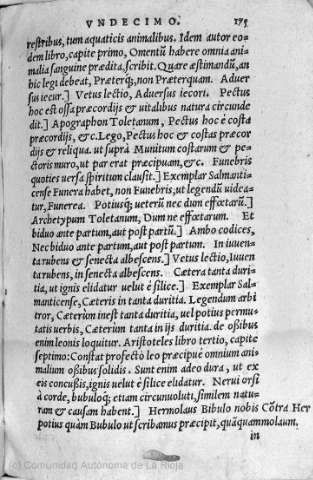 VNDECIMO. 175
restribus, tum aquaticis animalibus. Idem autor eo-
dem libro, capite primo, Omentũ habere omnia ani-
malia sanguine prædita, scribit. Quare æstimandũ, an
hic legi debeat, Præterq;, non Præterquam. Aduer
sus ieeur.] Vetus lectio, Aduersus iecori. Pectus
hoc est ossa præcordijs & uitalibus natura circunde
dit.] Apographon Toletanum, Pectus hoc è costa
præcordijs, &c. Lego, Pectus hoc & costas præcor
dijs & reliqua. ut suprà Munitum costarum & pe-
ctoris muro, ut par erat præcipuam, &c. Funebris
quoties uersa spiritum clausit.] Exemplar Salmanti-
cense Funera habet, non Funebris, ut legendũ uidea-
tur, Funerea. Potiusq; ueterũ nec dum effœtarũ.]
Archetypum Toletanum, Dum ne effœtarum. Et
biduo ante partum, aut post partũ.] Ambo codices,
Nec biduo ante partum, aut post partum. In iuuen-
ta rubens & senecta albescens.] Vetus lectio, Iuuen
ta rubens, in senecta albescens. Cætera tanta duri-
tia, ut ignis elidatur uelut è silice.] Exemplar Sal-
manticense, Cæteris in tanta duritia. Legendum arbi
tror, Cæterùm inest tanta duritia, uel potius permu-
tatis uerbis, Cæterùm tanta in ijs duritia. de ossibus
enim leonis loquitur. Aristoteles libro tertio, capite
septimo: Constat profectò leo præcipuè omnium ani-
malium ossibus solidis. Sunt enim adeo dura, ut ex
eis concussis, ignis uelut è silice elidatur. Nerui orsi
à corde, bubuloq; etiam circunuoluti, similem natu-
ram & causam habent.] Hermolaus Bibulo nobis Cõtra Her
potius quàm Bubulo ut scribamus præcipit, quãquam nolaum.
in
(c) Comunidad Autónoma de La Rioja